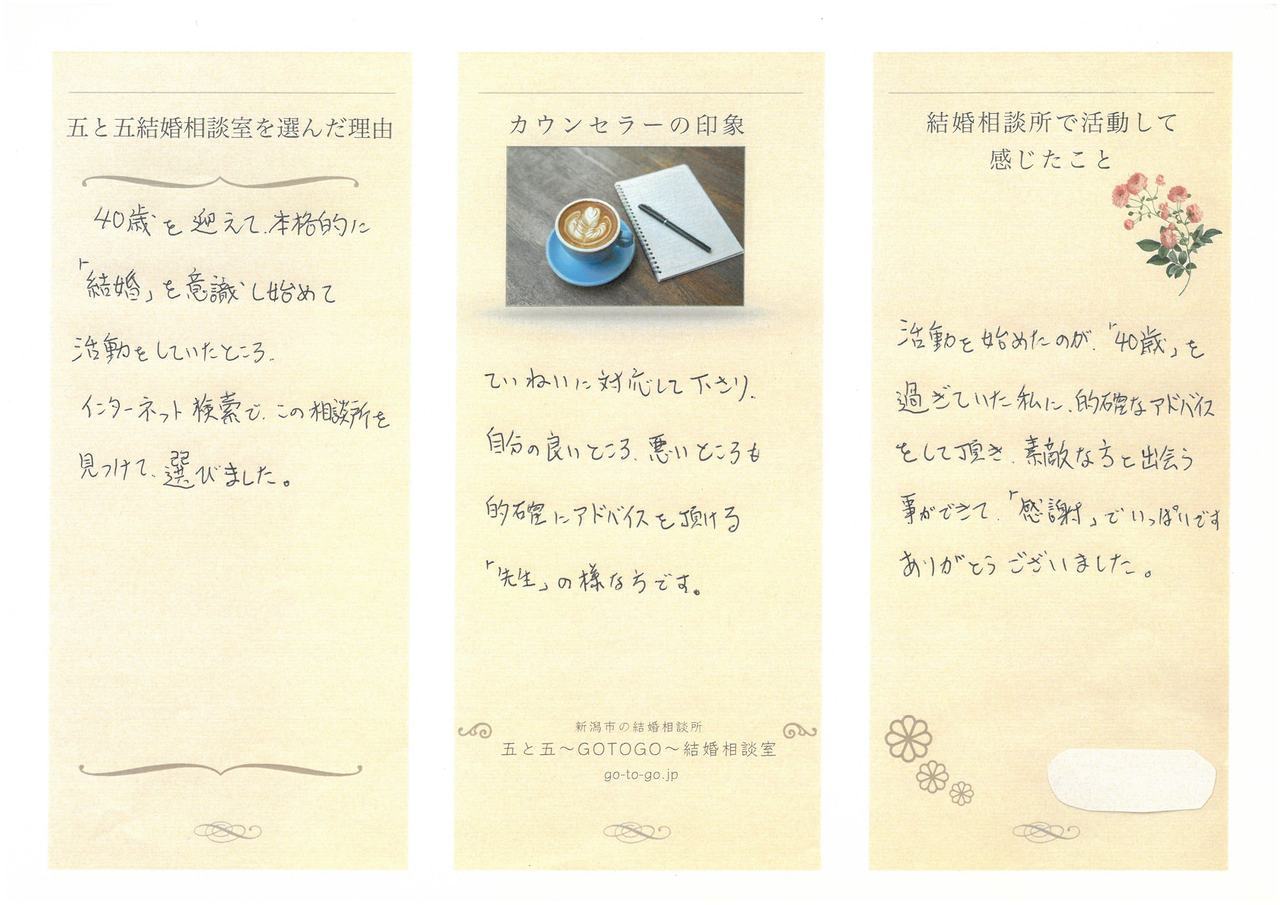 五と五結婚相談室を選んだ理由
40歳を迎えて、本格的に
「結婚」を意識し始めて
活動をしていたところ、
インターネット検索で、この相談所を
見つけて、選びました。
カウンセラーの印象
ていねいに対応して下さり、
自分の良いところ、悪いところも
的確にアドバイスを頂ける
「先生」の様な方です。
新潟市の結婚相談所
五と五〜GOTOGO〜結婚相談室
go-to-go.jp
結婚相談所で活動して
感じたこと
活動を始めたのが、「40歳」を
過ぎていた私に、的確なアドバイス
をして頂き、素敵な方と出会う
事ができて、「感謝」でいっぱいです
ありがとうございました。